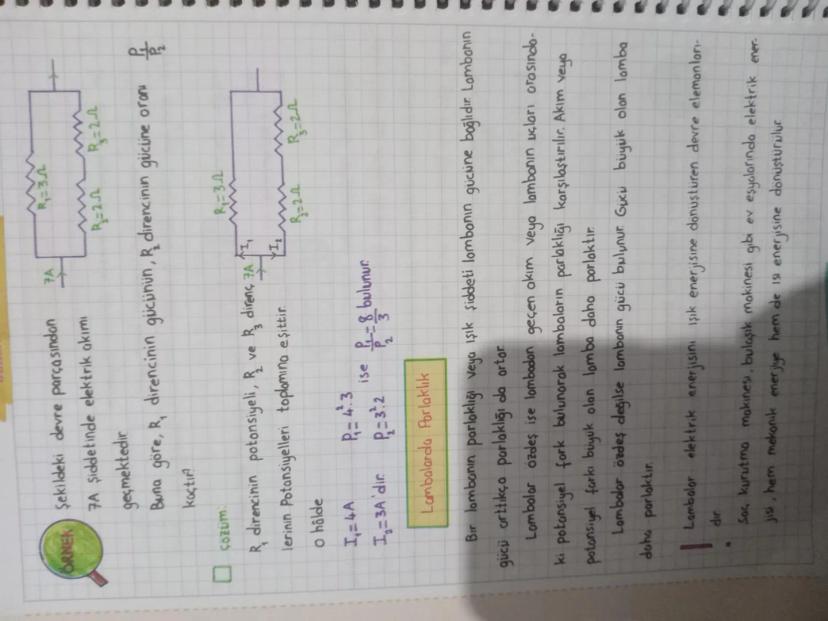 ÖRNEK
Şekildeki devre parçasından
7A şiddetinde elektrik akımı
geçmektedir.
Buna göre, R₁ direncinin gücünün, R₂ direncinin gücüne oranı P₁/P₂
kaçtır?
7A
R₁=3Ω
R₂=2Ω
R₃=2Ω
çözüm:
R₁ direncinin potansiyeli, R₂ ve R₃ direnç
lerinin Potansiyelleri toplamına eşittir.
O hâlde
I₁=4A P₁=4².3
I₂=3A'dir. P₂=3².2 ise P₁/P₂=8/3 bulunur.
R₁=3Ω
7A
I₁
I₂
R₂=2Ω
R₃=2Ω
Lambalarda Parlaklık
Bir lambanın parlaklığı veya ışık şiddeti lambanın gücüne bağlıdır. Lambanın
gücü arttıkça parlaklığı da artar.
Lambalar özdeş ise lambadan geçen akım veya lambanın uçları arasında-
ki potansiyel fark bulunarak lambaların parlaklığı karşılaştırılır. Akım veya
potansiyel farkı büyük olan lamba daha parlaktır.
Lambalar özdeş değilse lambanın gücü bulunur. Gücü büyük olan lamba
daha parlaktır.
Lambalar elektrik enerjisini ışık enerjisine dönüştüren devre elemanları-
dır.
• Saç kurutma makinesi, bulaşık makinesi gibi ev eşyalarında elektrik ener-
jisi, hem mekanik enerjiye hem de ısı enerjisine dönüştürülür.